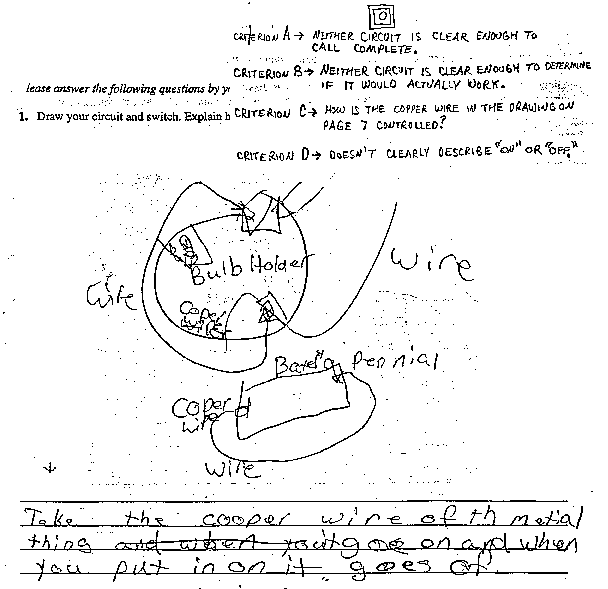 0
CRITERION A → NEITHER CIRCUIT IS CLEAR ENOUGH TO
CALL COMPLETE.
CRITERION B → NEITHER CIRCUIT IS CLEAR ENOUGH TO DETERMINE
IF IT WOULD ACTUALLY WORK.
lease answer the following questions by y
1. Draw your circuit and switch. Explain h
CRITERION C → HOW IS THE COPPER WIRE IN THE DRAWING ON
PAGE 7 CONTROLLED?
CRITERION D → DOESN'T CLEARLY DESCRIBE "ON" OR "OFF."
Bulb Holder
wire
wire
Coper
wire
Pennial
Coper
wire
wire
Take the cooper wire of th matial
thing and when you it goe on and when
you put in on it goes of